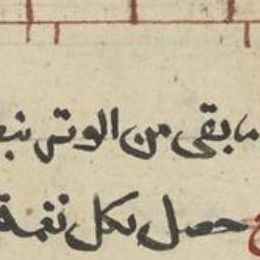 ما بقى من الوتر
حصل لكل نغمة